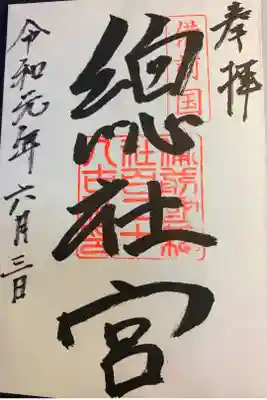 奉拝
備前国
總社宮
令和元年六月三日